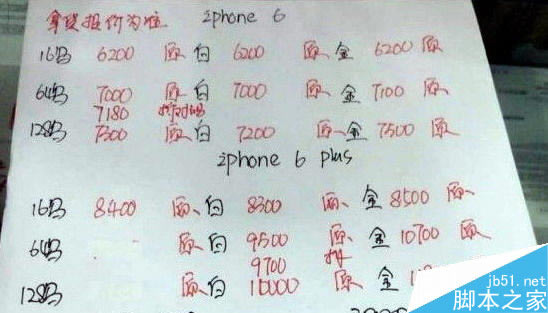 拿货报价为准 iphone 6
16吗 6200 原 白 6200 原 金 6200 原
64吗 7000 原 白 7000 原 金 7100 原
7180
128吗 7300 原 白 7200 原 金 7500 原
iphone 6 plus
16吗 8400 原 白 8300 原 金 8500 原
64吗 原 白 9500 原 金 10700 原
9700 拆
128吗 原 白 10000 原 金
jb51.net
脚本之家